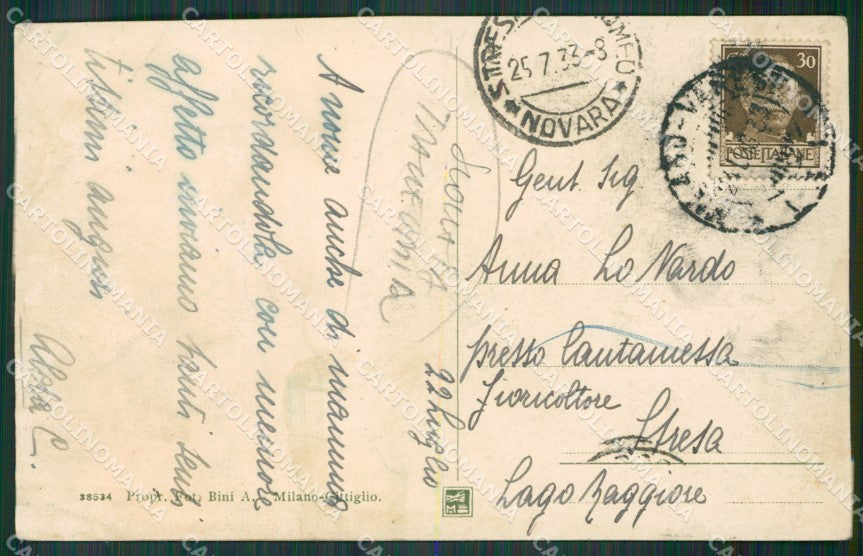 A nome anche di mamma
ricordandola con memore
affetto inviamo tanti sens
tissimi auguri
22 luglio
38624 Propr. Fot. Bini A. Milano-Cittiglio.
STRESA BORROMEO
25.7.33-8
NOVARA
30
POSTE ITALIANE
Gent. Sig
Anna Lo Nardo
presso Cantamessa
Fioricoltore
Stresa
Lago Maggiore
CARTOLINOMANIA